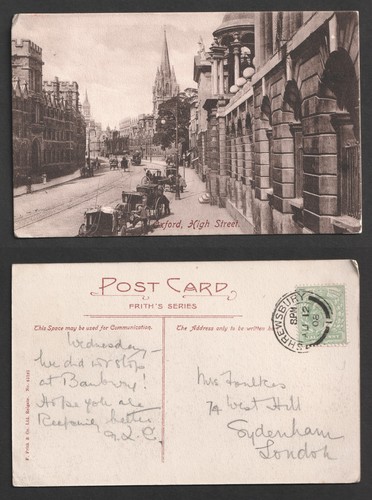 Oxford, High Street.
POST CARD
FRITH'S SERIES
This Space may be used for Communication.
The Address only to be written
Wednesday –
We did not stop
at Banbury!
Hope you are
keeping better
Mrs Foulkes
74 West Hill
Sydenham
London
SHREWSBURY
8 PM
12
08
F. Frith & Co. Ltd. Reigate.